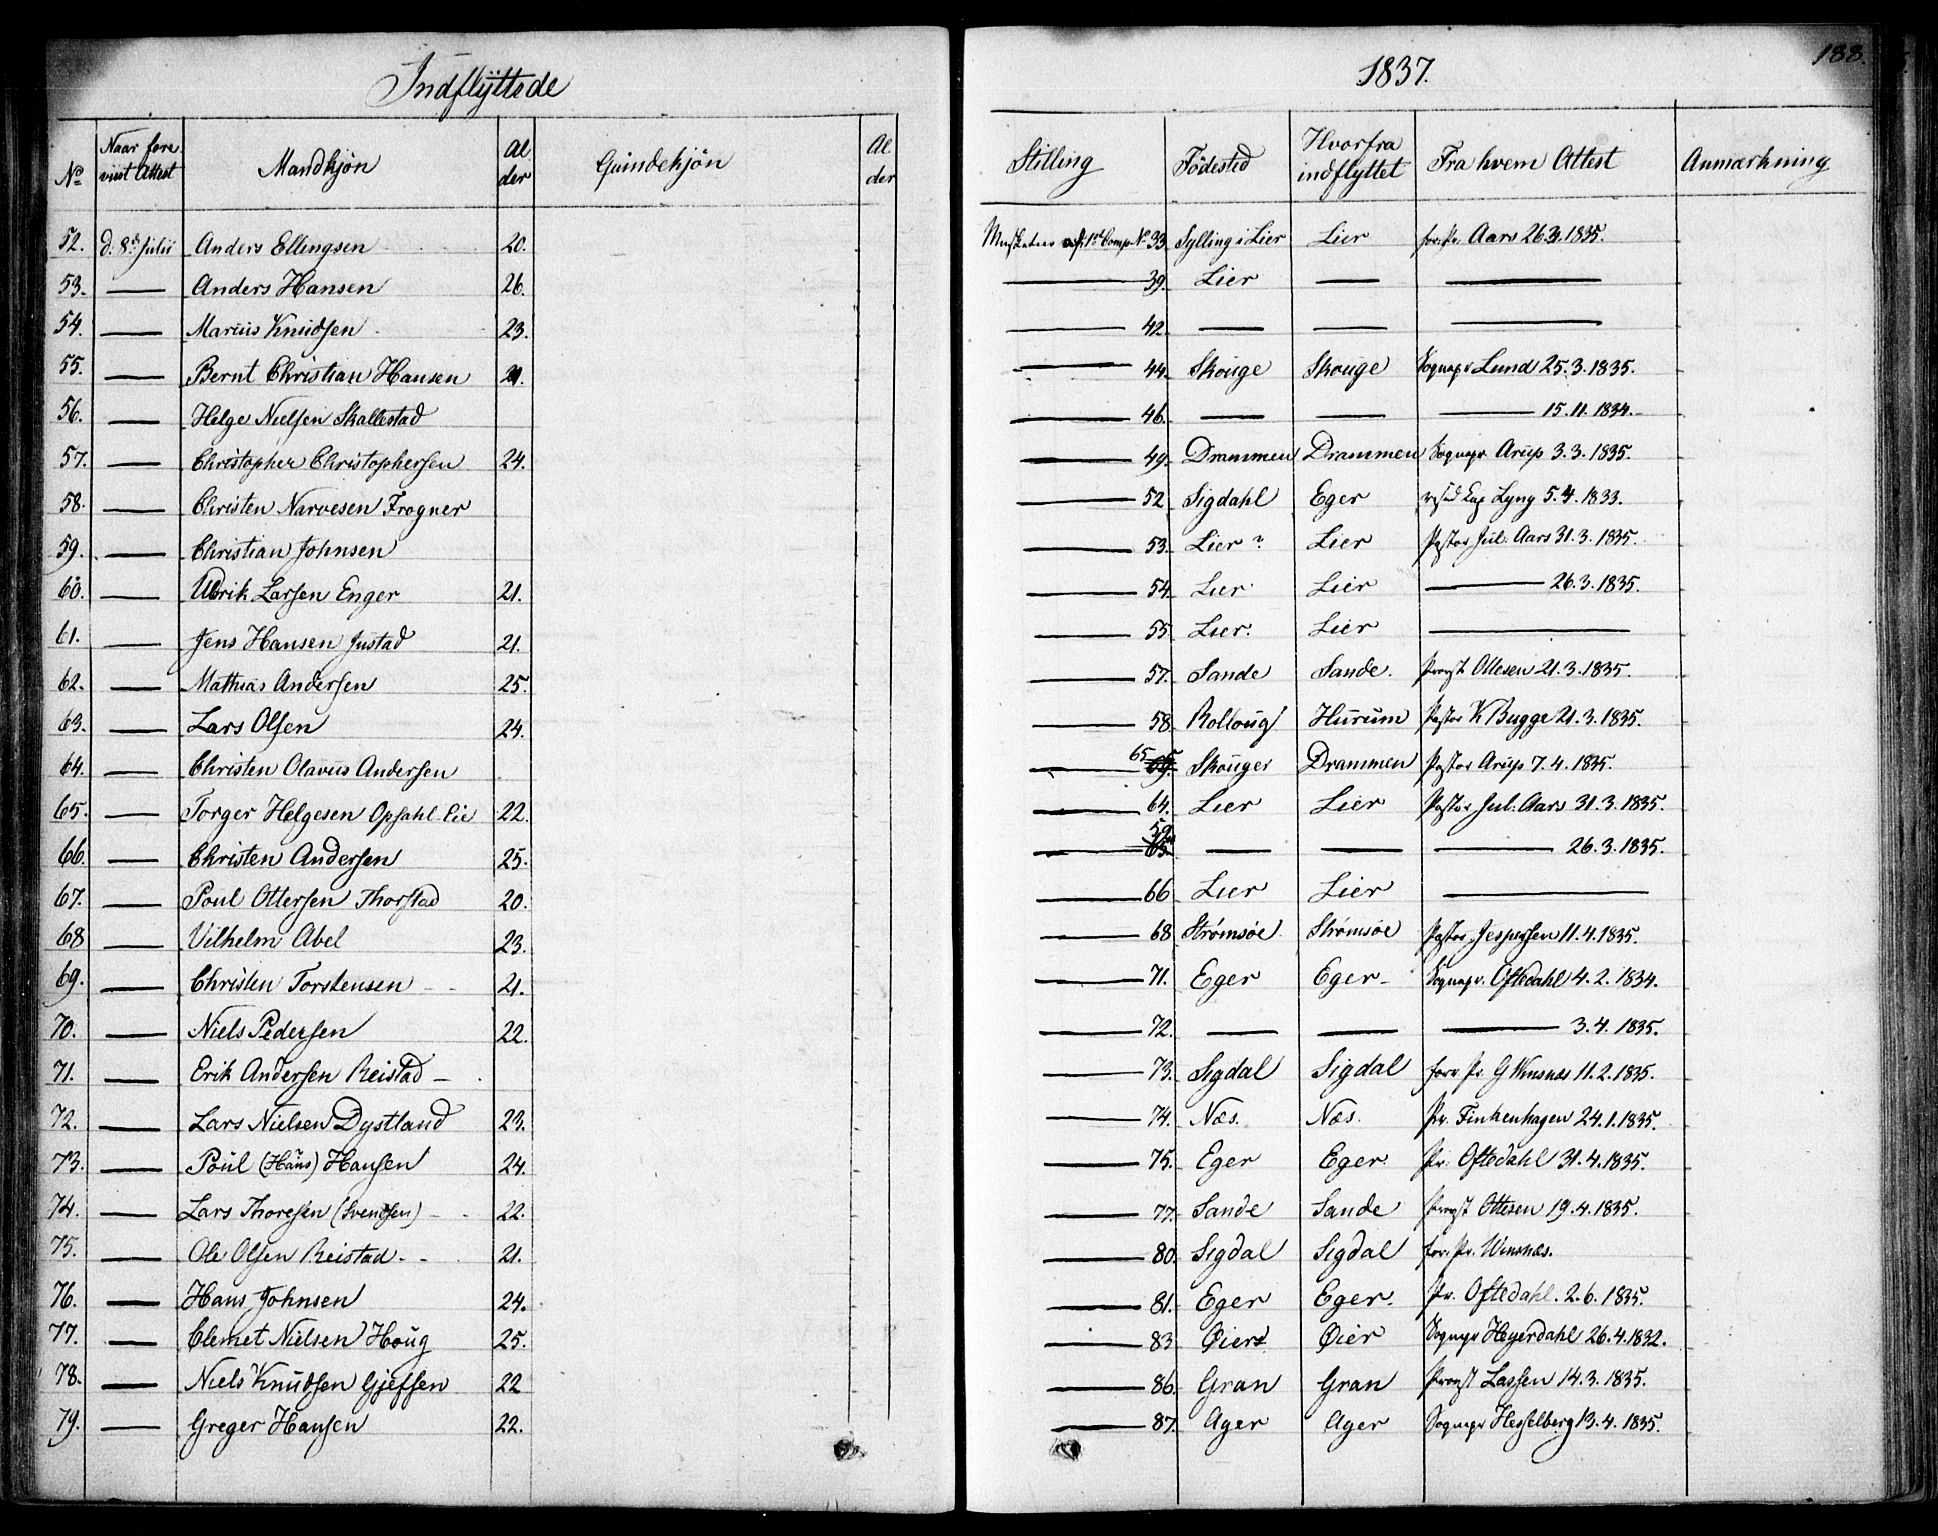 Indflÿttede 1837. 188.
No Naar fore viist Attest Mandkjön Al der Qvindekjön Al der Stilling Födested Hvorfra indflyttet Fra hvem Attest Anmærkning
52. d. 8de Julii Anders Ellingsen 20. Musketeer af 1ste Comp No 33 Sylling i Lier Lier for. Pr. Aars 26.3.1835.
53. — Anders Hansen 26. — 39. Lier — —
54. — Marius Knudsen 23. — 42. — — —
55. — Bernt Christian Hansen 21. — 44. Skouge Skouge Sognepr Lund 25.3.1835.
56. — Helge Nielsen Skallestad — 46. — — — 15.11.1834.
57. — Christopher Christophersen 24. — 49. Drammen Drammen Sognepr Arup 3.3.1835.
58. — Christen Narvesen Frogner — 52 Sigdahl Eger resid Cap Lyng 5.4.1833.
59. — Christian Johnsen — 53. Lier? Lier Pastor Jul. Aars 31.3.1835.
60. — Ulrik Larsen Enger 21. — 54. Lier Lier — 26.3.1835.
61. — Jens Hansen Justad 21. — 55. Lier. Lier —
62. — Mathias Andersen 25. — 57. Sande Sande. Provst Ottesen 21.3.1835.
63. — Lars Olsen 24. — 58. Rolloug Hurum Pastor K Bugge 21.3.1835.
64. — Christen Olavus Andersen — 65 Skouger Drammen Pastor Arup 7.4.1835.
65. — Torger Helgesen Opsahl-Eie 22. — 64. Lier Lier Pastor Jul. Aars 31.3.1835.
66. — Christen Andersen 25. — 59 — — — 26.3.1835.
67. — Poul Ottersen Thorstad 20. — 66 Lier Lier —
68 — Vilhelm Abel 23. — 68 Strømsøe Strømsøe Pastor Jespersen 11.4.1835.
69. — Christen Torstensen 21. — 71. Eger Eger Sognepr. Oftedahl 4.2.1834.
70. — Niels Pedersen 22. — 72. — — — 3.4.1835.
71. — Erik Andersen Reistad — 73. Sigdal Sigdal forr Pr. G Winsnæs 11.2.1835.
72. — Lars Nielsen Dystland 23. — 74. Næs. Næs. Pr. Finkenhagen 24.1.1835.
73. — Poul (Hans) Hansen 24. — 75. Eger Eger Pr. Oftedahl 31.4.1835.
74. — Lars Thoresen (Svendsen) 22. — 77. Sande Sande Provst Ottesen 19.4.1835.
75. — Ole Olsen Reistad 21. — 80. Sigdal Sigdal for. Pr. Winsnæs.
76. — Hans Johnsen 24. — 81. Eger Eger. Pr. Oftedahl. 2.6.1835.
77. — Clemet Nielsen Houg 25. — 83. Øier Øier Sognepr Heyerdahl 26.4.1832.
78. — Niels Knudsen Gjefsen 22 — 86. Gran Gran Provst Lassen 14.3.1835.
79. — Greger Hansen 22. — 87. Ager Ager Sognepr Hesselberg 13.4.1835.